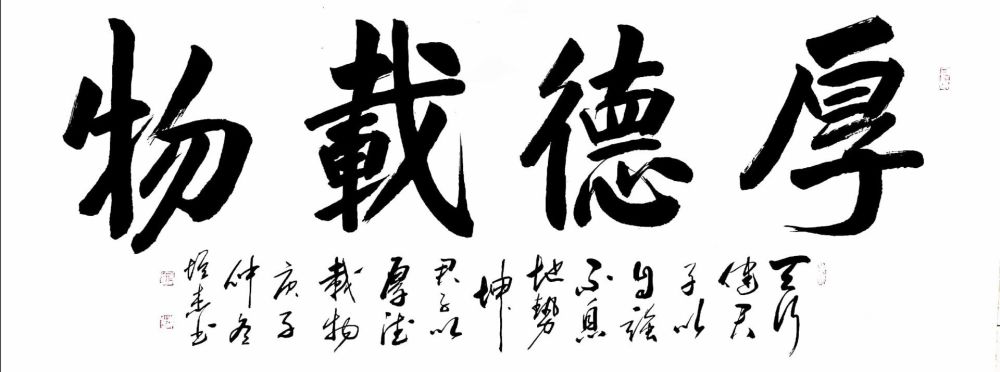 厚德載物
天行
健君
子以
自强
不息
地勢
坤
君子以
厚德
載物
庚子
仲冬
杰书